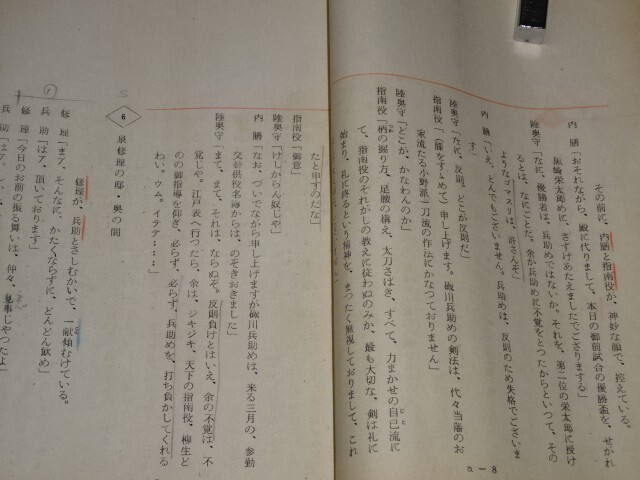 その前に、内勝と指南役が、神妙な顔で、控えている。
内　勝「おそれながら、殿に代りまして、本日の御前試合の優勝盃を、せがれ
黒崎栄太郎めに、さずけあたえましたでござりまする」
陸奥守「なに、優勝者は、兵助めではないか。それを、第二位の栄太郎に授け
るとは、なにごとだ。余が兵助めに不覚をとつたからといつて、その
ようなゴマスリは、許さんぞ」
内　勝「いえ、とんでもございません。兵助めは、反則のため失格でございま
す」
陸奥守「なに、反則。どこが反則だ」
指南役「(膝をすゝめて)申し上げます。磯川兵助めの剣法は、代々当藩のお
家流たる小野派一刀流の作法にかなつておりません」
陸奥守「どこが、かなわんのか」
指南役「柄の握り方、足腰の構え、太刀さばき、すべて、力まかせの自己流に
て、指南役のそれがしの教えに従わぬのみか、最も大切な、剣は礼に
始まり、礼に終るという精神を、まつたく無視しておりまして、これ
a－8
たと申すのだな」
指南役「御意」
陸奥守「けしからん奴じや」
内　勝「なお、ついでながら申し上げますが磯川兵助めは、来る三月の、参勤
交替供役名簿からは、のぞきおきました」
陸奥守「まて、まて、それは、ならぬぞ。反則負けとはいえ、余の不覚は、不
覚じや。江戸表へ行つたら、余は、ジキジキ、天下の指南役、柳生ど
のの御指導を仰ぎ、必らず、必らず、兵助めを、打ち負かしてくれる
わい。ウム。イテテ……」
S
6
泉修理の邸・奥の間
修理が、兵助とさしむかいで、一献傾むけている。
修　理「まア、そんなに、かたくならずに、どんどん飲め」
兵　助「はア、頂いております」
修　理「今日のお前の振る舞いは、仲々、見事じやつたよ」